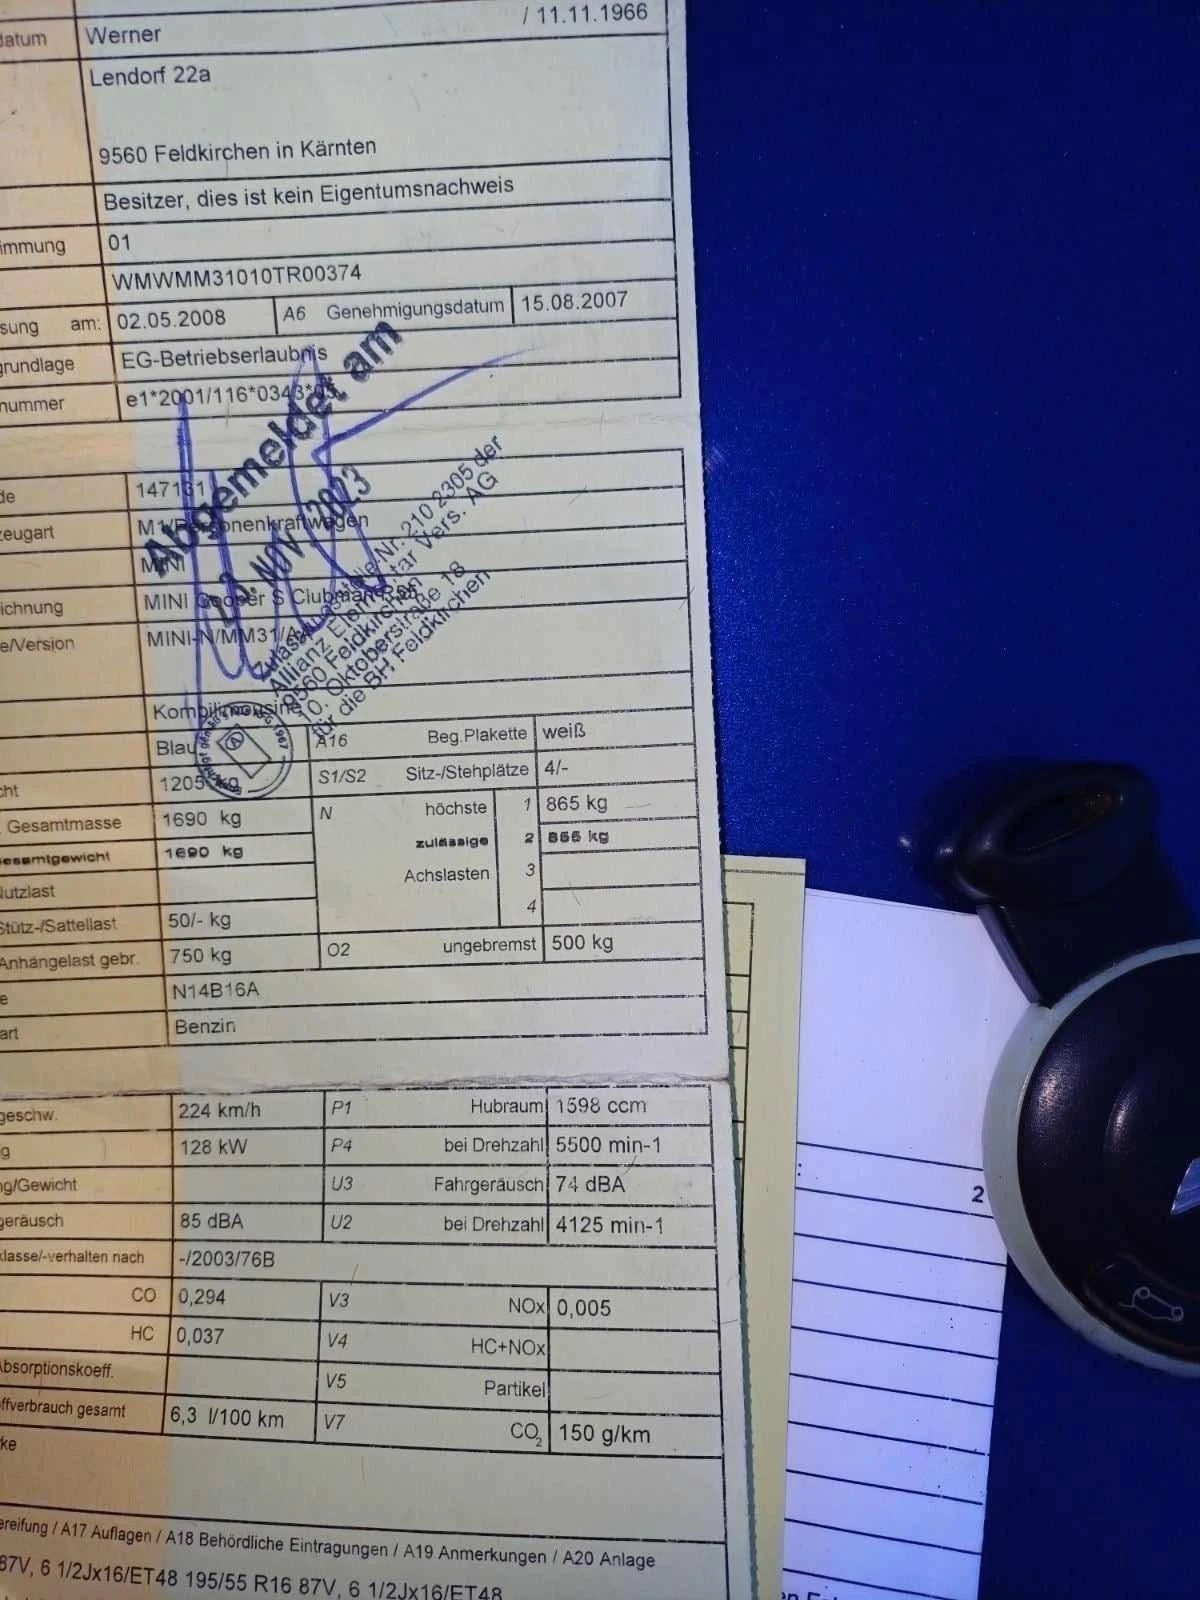 datum Werner / 11.11.1966
Lendorf 22a
9560 Feldkirchen in Kärnten
Besitzer, dies ist kein Eigentumsnachweis
immung 01
WMWMM31010TR00374
sung am: 02.05.2008 A6 Genehmigungsdatum 15.08.2007
grundlage EG-Betriebserlaubnis
nummer e1*2001/116*0343*
Abgemeldet am
NOV. 2023
Zulassungsstelle Nr. 210 2305 der
Allianz Elementar Vers. AG
9560 Feldkirchen
10. Oktoberstraße 18
für die BH Feldkirchen
de 147131
zeugart M1/Personenkraftwagen
MINI
ichnung MINI Cooper S Clubman R55
e/Version MINI-N/MM31/
Kombilimousine
Blau A16 Beg.Plakette weiß
cht 1205 kg S1/S2 Sitz-/Stehplätze 4/-
. Gesamtmasse 1690 kg N höchste 1 865 kg
esamtgewicht 1690 kg zulässige 2 865 kg
Nutzlast Achslasten 3
Stütz-/Sattellast 50/- kg 4
Anhängelast gebr. 750 kg O2 ungebremst 500 kg
e N14B16A
art Benzin
geschw. 224 km/h P1 Hubraum 1598 ccm
g 128 kW P4 bei Drehzahl 5500 min-1
ng/Gewicht U3 Fahrgeräusch 74 dBA
geräusch 85 dBA U2 bei Drehzahl 4125 min-1
klasse/-verhalten nach -/2003/76B
CO 0,294 V3 NOx 0,005
HC 0,037 V4 HC+NOx
Absorptionskoeff. V5 Partikel
ffverbrauch gesamt 6,3 l/100 km V7 CO2 150 g/km
ke
ereifung / A17 Auflagen / A18 Behördliche Eintragungen / A19 Anmerkungen / A20 Anlage
87V, 6 1/2Jx16/ET48 195/55 R16 87V, 6 1/2Jx16/ET48
:
2